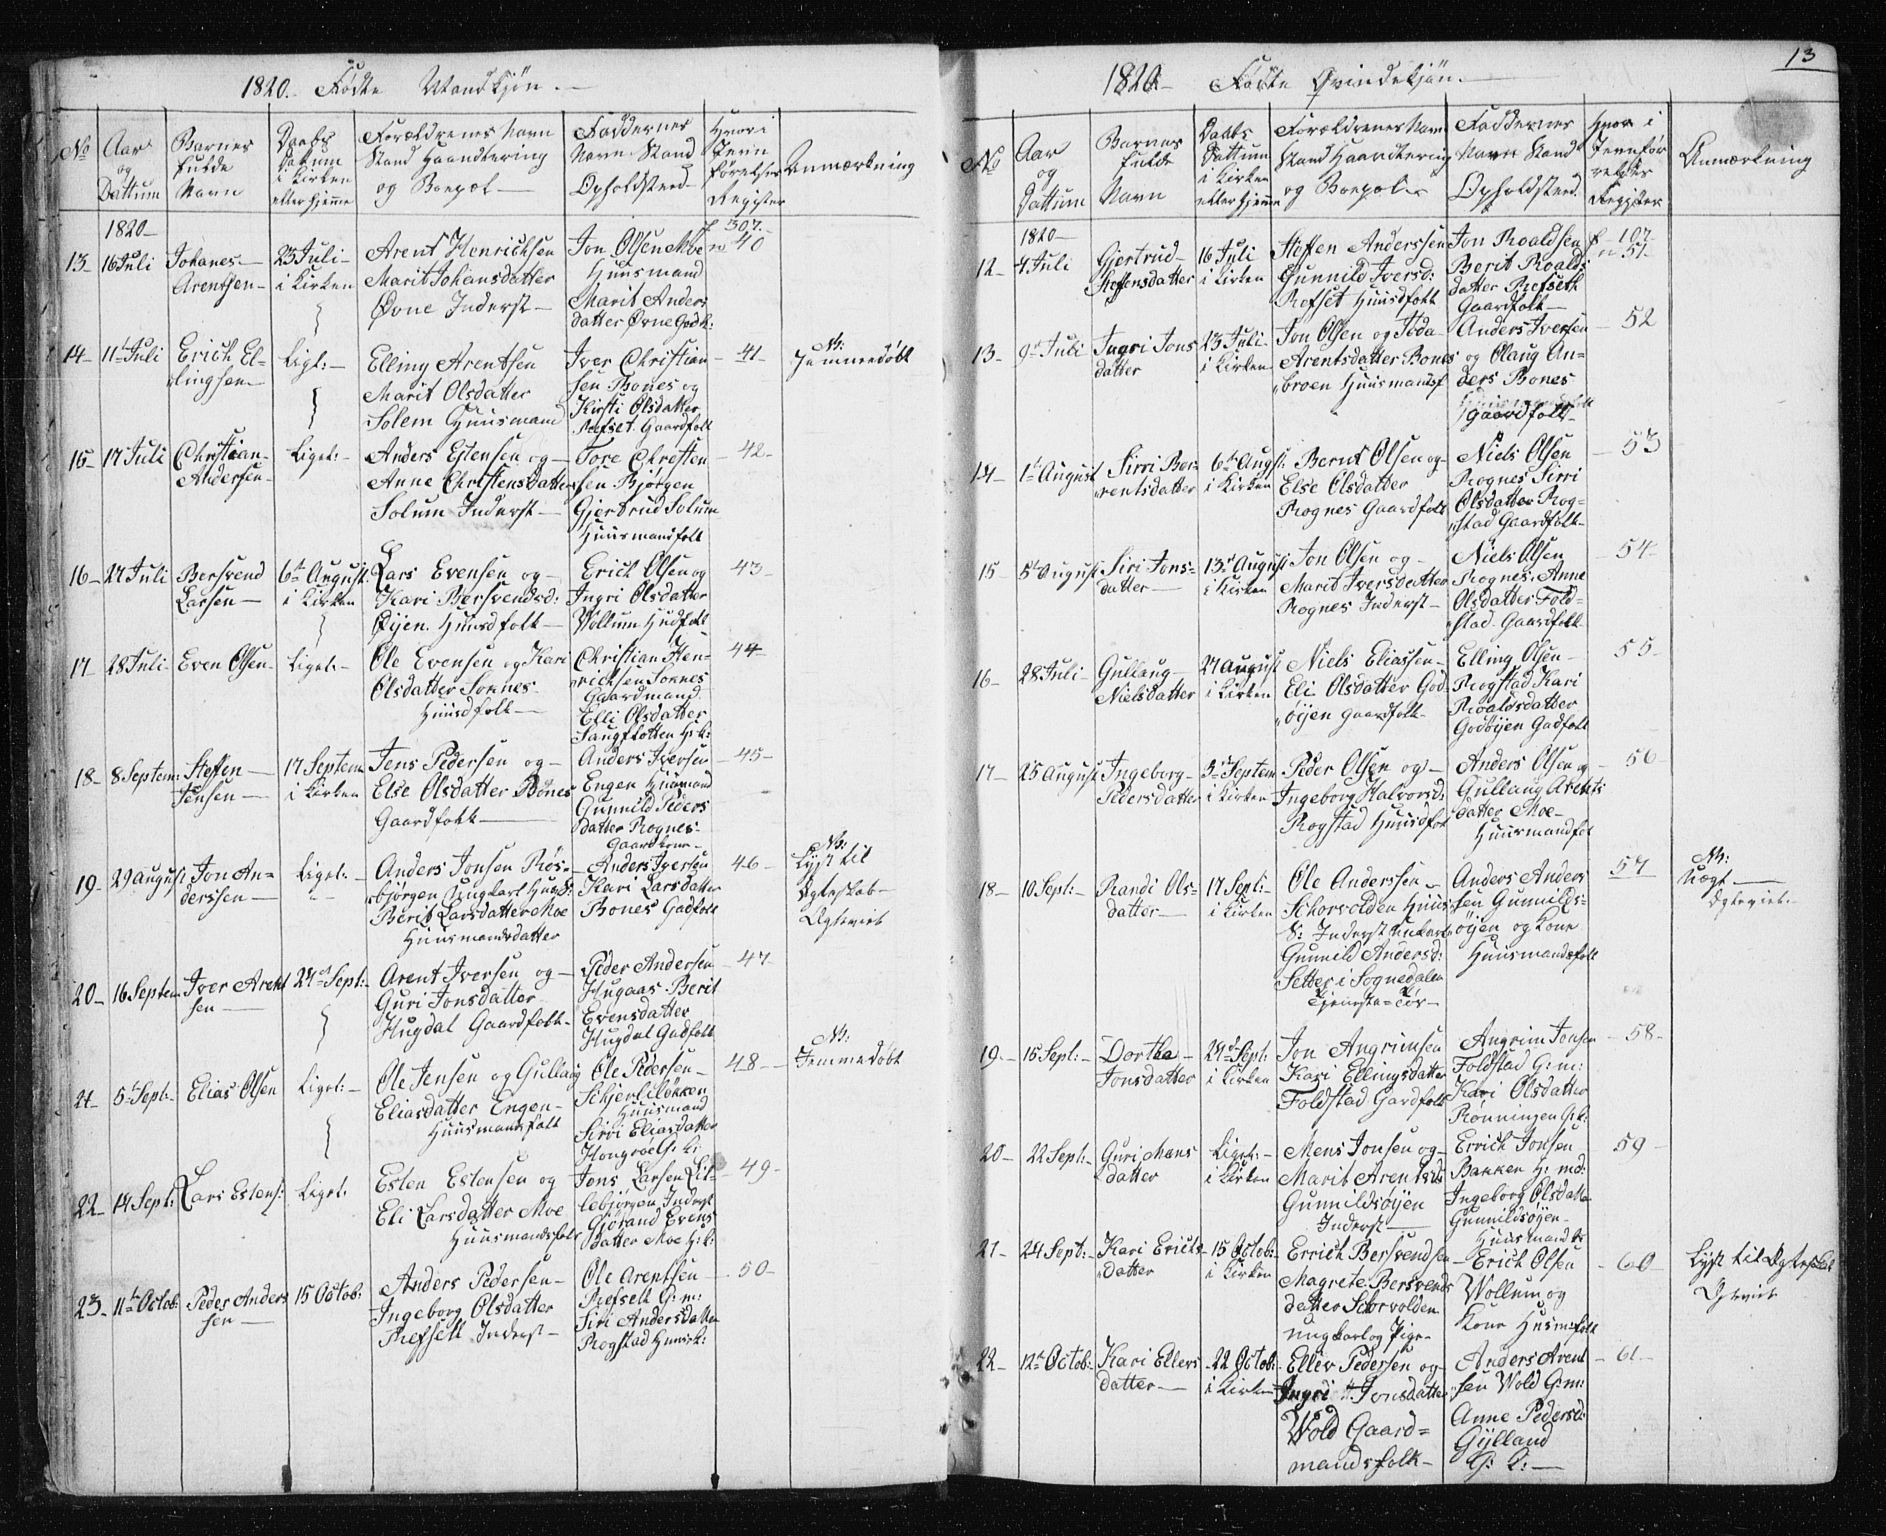 1820. Fødte Mandkjøn.
No
Aar og Dattum
Barnes fulde Navn
Daabs Datum i Kirken eller hjemme
Forældrenes Navn Stand Haandtering og Boepæl
Faddernes Navn Stand Opholdsted
Hvori Jevnførelses Register
Anmærkning
1820
13 16 Juli
Johanes Arentsen
23 Juli i Kirken
Arent Henrichsen
Marit Johansdatter
Øvne Inderst
Jon Olsen Moe
Huusmand
Marit Anders
datter Øvne Godk:
f 307.
n 40
14 11t Juli
Erich El-
lingsen
Ligt:
Elling Arentsen
Marit Olsdatter
Solem Huusmand
Iver Christian
sen Bones og
Kirsti Olsdatter
Refset Gaardfolk
41
N:
Hjemmedøbt
15 17 Juli
Christian
Andersen
Liget:
Anders Estensen og
Anne Christensdatter
Solum Inderst
Tore Christen
sen Bjørgen
Gjertrud Solum
Huusmandfolk
42
16 27 Juli
Bersvend
Larsen
6te August
i Kirken
Lars Evensen og
Kari Bersvendsd:
Øyen Huusfolk
Erich Olsen og
Ingri Olsdatter
Wollum Husfolk
43
17 28 Juli
Even Olsen
Liget
Ole Evensen og Kari
Olsdatter Soknes
Huusfolk
Christian Hen-
richsen Soknes
Gaardmand
Elli Olsdatter
Haugfotten H:k:
44
18 8 Septem:
Steffen
Jensen
17 Septem
i Kirken
Jens Pedersen og
Else Olsdatter Bones
Gaardfolk
Anders Iversen
Engen Huusmand
Gunnild Peders
datter Rognes
Gaardkone
45
19 29 August
Jon An=
derssen
Liget:
Anders Jonsen Røs-
bjørgen Ungkarl Huus:
Berit Larsdatter Moe
Huusmandsdatter
Anders Iversen
Kari Larsdatter
Bones Gadfolk
46
NB:
Lyst til
Ægteskab
Ægteviet
20 16 Septem
Iver Arent
sen
24de Sept:
Arent Iversen og
Guri Jonsdatter
Hugdal Gaardfolk
Peder Andersen
Hugaas Berit
Evensdatter
Hugdal Gadfolk
47
21 5te Sept:
Elias Olsen
Liget:
Ole Jensen og Gullaug
Eliasdatter Engen
Huusmansfolk
Ole Pedersen
Schjerliløkken
Huusmand
Sirri Eliasdatter
Hongroe G: k:
48
NB:
Jemmedøbt
22 14 Sept:
Lars Estens:
Liget:
Esten Estensen og
Eli Larsdatter Moe
Huusmandsfolk
Jons Larsen Lit-
lebjørgen Inderst
Gjørand Evens
datter Moe H:k:
49
23 11te Octob:
Peder Anders
sen
15 Octob:
Anders Pedersen
Ingeborg Olsdatter
Refsett Inderst
Ole Arentsen
Refsett G: m:
Siri Andersdatter
Rogstad Huusk:
50
13
1820 Fødte Qvindekjøn.
No
Aar og Dattum
Barnes fulde Navn
Daabs Dattum i Kirken eller hjemme
Forældrenes Navn Stand Haandtering og Boepæl
Faddernes Navn Stand Opholdsted
Hvor i Jevnførelses Register
Anmærkning
1820
12 4 Juli
Gjertrud
Steffensdatter
16 Juli
i Kirken
Steffen Anderssen
Gunnild Iversd:
Refset Huusfolk
Jon Roaldsen
Berit Roalds
datter Refseth
Gaardfolk
f 107
n 51
13 9de Juli
Ingri Jons
datter
23 Juli
i Kirken
Jon Olsen og Toda
Arentsdatter Bones
broen Huusmandsf
Anders Iversen
og Olaug An=
ders Bones
Gaardfolk
52
14 1te August
Sirri Ber-
rentsdatter
6te Augst:
i Kirken
Bernt Olsen og
Else Olsdatter
Rognes Gaardfolk
Niels Olsen
Rognes Sirri
Olsdatter Rog-
stad Gaardfolk
53
15 5te August
Siri Jons-
datter
13de August
i Kirken
Jon Olsen og
Marit Iversdatter
Rognes Inderst
Niels Olsen
Rognes. Anne
Olsdatter Fold-
stad Gaardfolk
54
16 28 Juli
Gullaug
Nielsdatter
27 August
i Kirken
Niels Eliassen
Eli Olsdatter God-
øijen gaardfolk
Elling Olsen
Rogstad Kari
Roaldsdatter
Godøijen Gadfolk
55
17 25 August
Ingeborg
Pedersdatter
3de Septem
i Kirken
Peder Olsen og
Ingeborg Halvorsd:
Rogstad Huusfol
Anders Olsen og
Gullaug Arents
datter Moe
Huusmandfol
56
18 10 Sept:
Randi Ols-
datter
17 Sept:
i Kirken
Ole Anderssen
Schorvolden Huus
S: Inderst Unkarl
Gunnild Andersd:
Setter i Sognedalen
Tjeneste=Tøs
Anders Anders
sen Gunnilds-
øijen og Kone
Huusmandsfolk
57
NB:
Uægt
Ægteviet
19 15 Sept:
Dorthea
Jonsdatter
24de Sept:
i Kirken
Jon Angrimsen
Kari Ellingsdatter
Foldstad Gardfolk
Angrim Jonsen
Foldstad G: m:
Kari Olsdatter
Rønningen G:k:
58
20 22 Sept:
Guri Mons
datter
Liget:
i Kirken
Mens Jonsen og
Marit Arentsd:
Gunnildsøijen
Inderst
Errich Jonsen
Bakken H: md:
Ingeborg Olsdatter
Gunnildsøijen
Huusmand
59
21 24 Sept:
Kari Erichs
datter
15 Octob:
i Kirken
Errich Bersvendsen
Magrete Bersvends
datter Schorvolden
ungkarl og Pige
Erich Olsen
Wollum og
Kone Husmfolk
60
Lyst til Ægteskab
Ægteviet
22 12te Octob:
Kari Ellevs
datter
22 Octob:
i Kirken
Ellev Pedersen og
Ingri Jonsdatter
Wold Gaard=
mandsfolk
Anders Arent
sen Wold G:m:
Anne Pedersd:
Gylland
G: k:
61